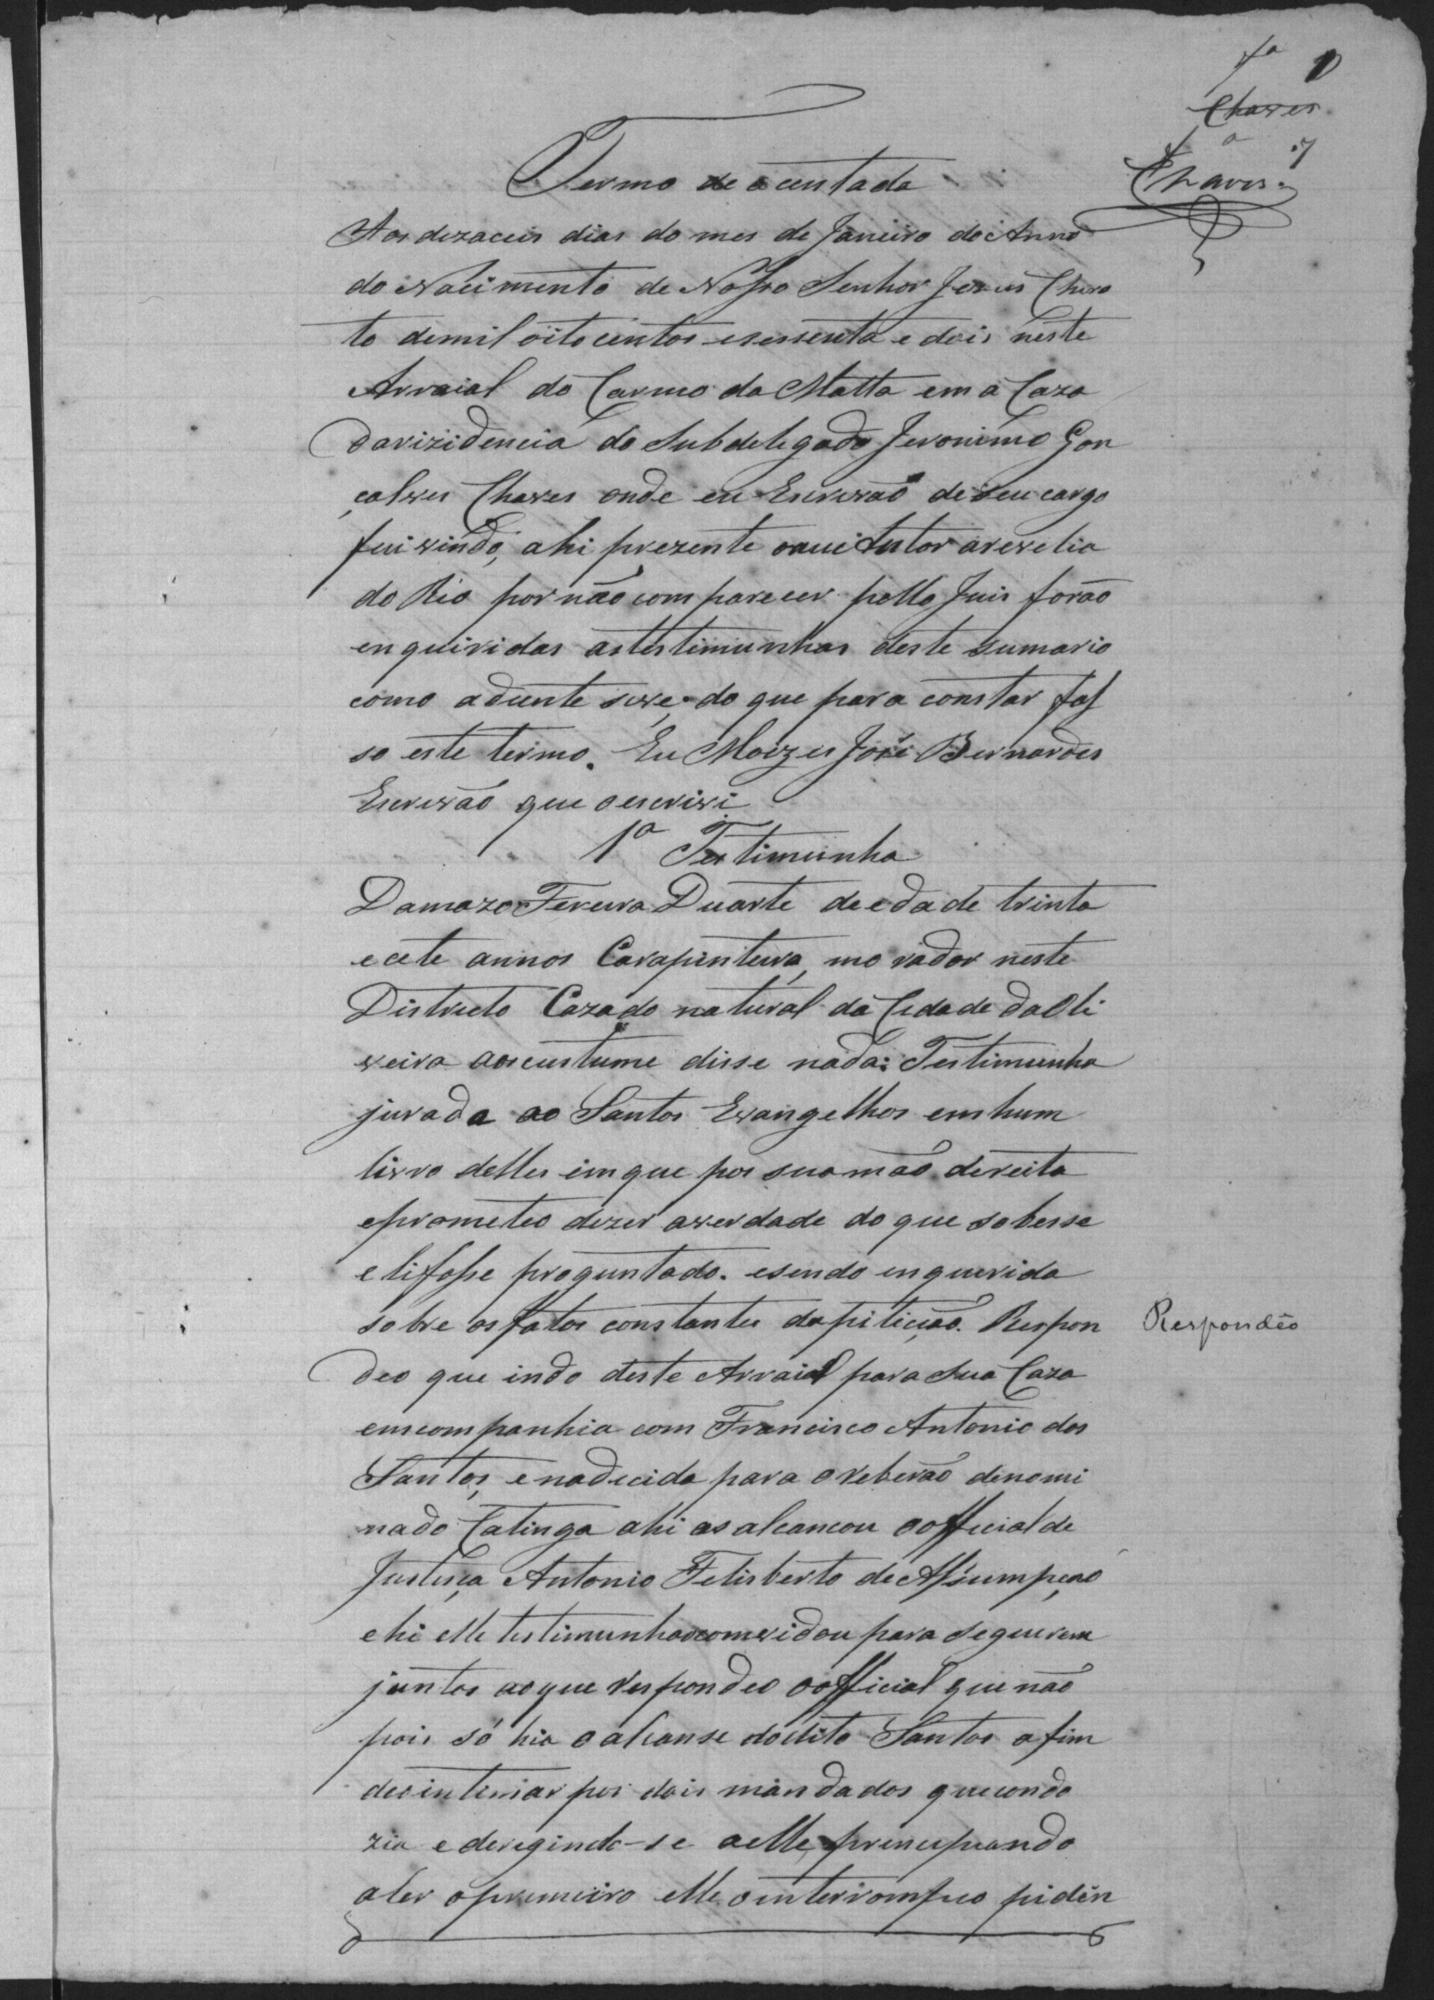 Chaves
7
Chaves
Termo de acentada
Aos dezaceis dias do mes de Janeiro do Anno
do Nacimento de Nosso Senhor Jezus Chris
to demil oito centos esessenta e dois neste
Arraial do Carmo da Matta em a Caza
darizidencia do Subdelegado Jeronimo Gon
çalves Chaves onde eu Escrivão de seu cargo
fui vindo, ahi prezente oauctutor arevelia
do Rio por não comparecer pello Juis forão
enquiridas astestimunhas deste sumario
como adiente seve, do que para constar fas
so este termo. Eu Moizes José Bernardes
Escrivão que oescrivi
1a Testimunha
Damazo Fereira Duarte de edade trinta
ecete annos Carapinteira, morador neste
Districto Cazado natural da Cidade daOli
veira aocustume disse nada: Testimunha
jurada ao Santos Evangelhos emhum
livro delles emque pos suamão direita
eprometeo dizer averdade do que sobesse
elifosse proguntado. esendo enquerida
sobre osfatos constantes dapitição. Respon
Respondêo
deo que indo deste Arraial para sua Caza
emcompanhia com Francisco Antonio dos
Santos, enadecida para oreberão denomi
nado Catinga ahi os alcancou oofficial de
Justiça Antonio Felisberto de Assumpção
ehi elle testimunha oconvidou para seguirem
juntos aoque respondeo oofficial que não
pois só hia oalcanse dodito Santos afim
deointimar por dois mandados quecondo
zia ederegindo-se aelle, principiando
aler oprimeiro elle ointerrompeo pidin